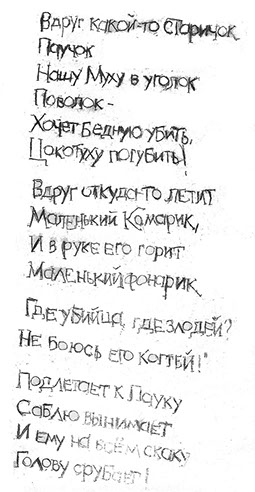 Вдруг какой-то старичок
Паучок
Нашу Муху в уголок
Поволок -
Хочет бедную убить,
Цокотуху погубить!
Вдруг откуда-то летит
Маленький Комарик,
И в руке его горит
Маленький фонарик
Где убийца, где злодей?
Не боюсь его когтей!"
Подлетает к Пауку
Саблю вынимает
И ему на всём скаку
Голову срубает!